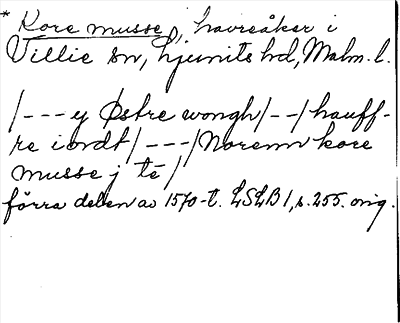 * Kore musse, i havreåker i
Villie sn, Ljunits hd, Malm. l.
/---y Østre wongh/--/hauff-
re iordt/---/Norenn kore
musse j tē/
förra delen av 1570-t. LSLB 1, s. 255. orig.